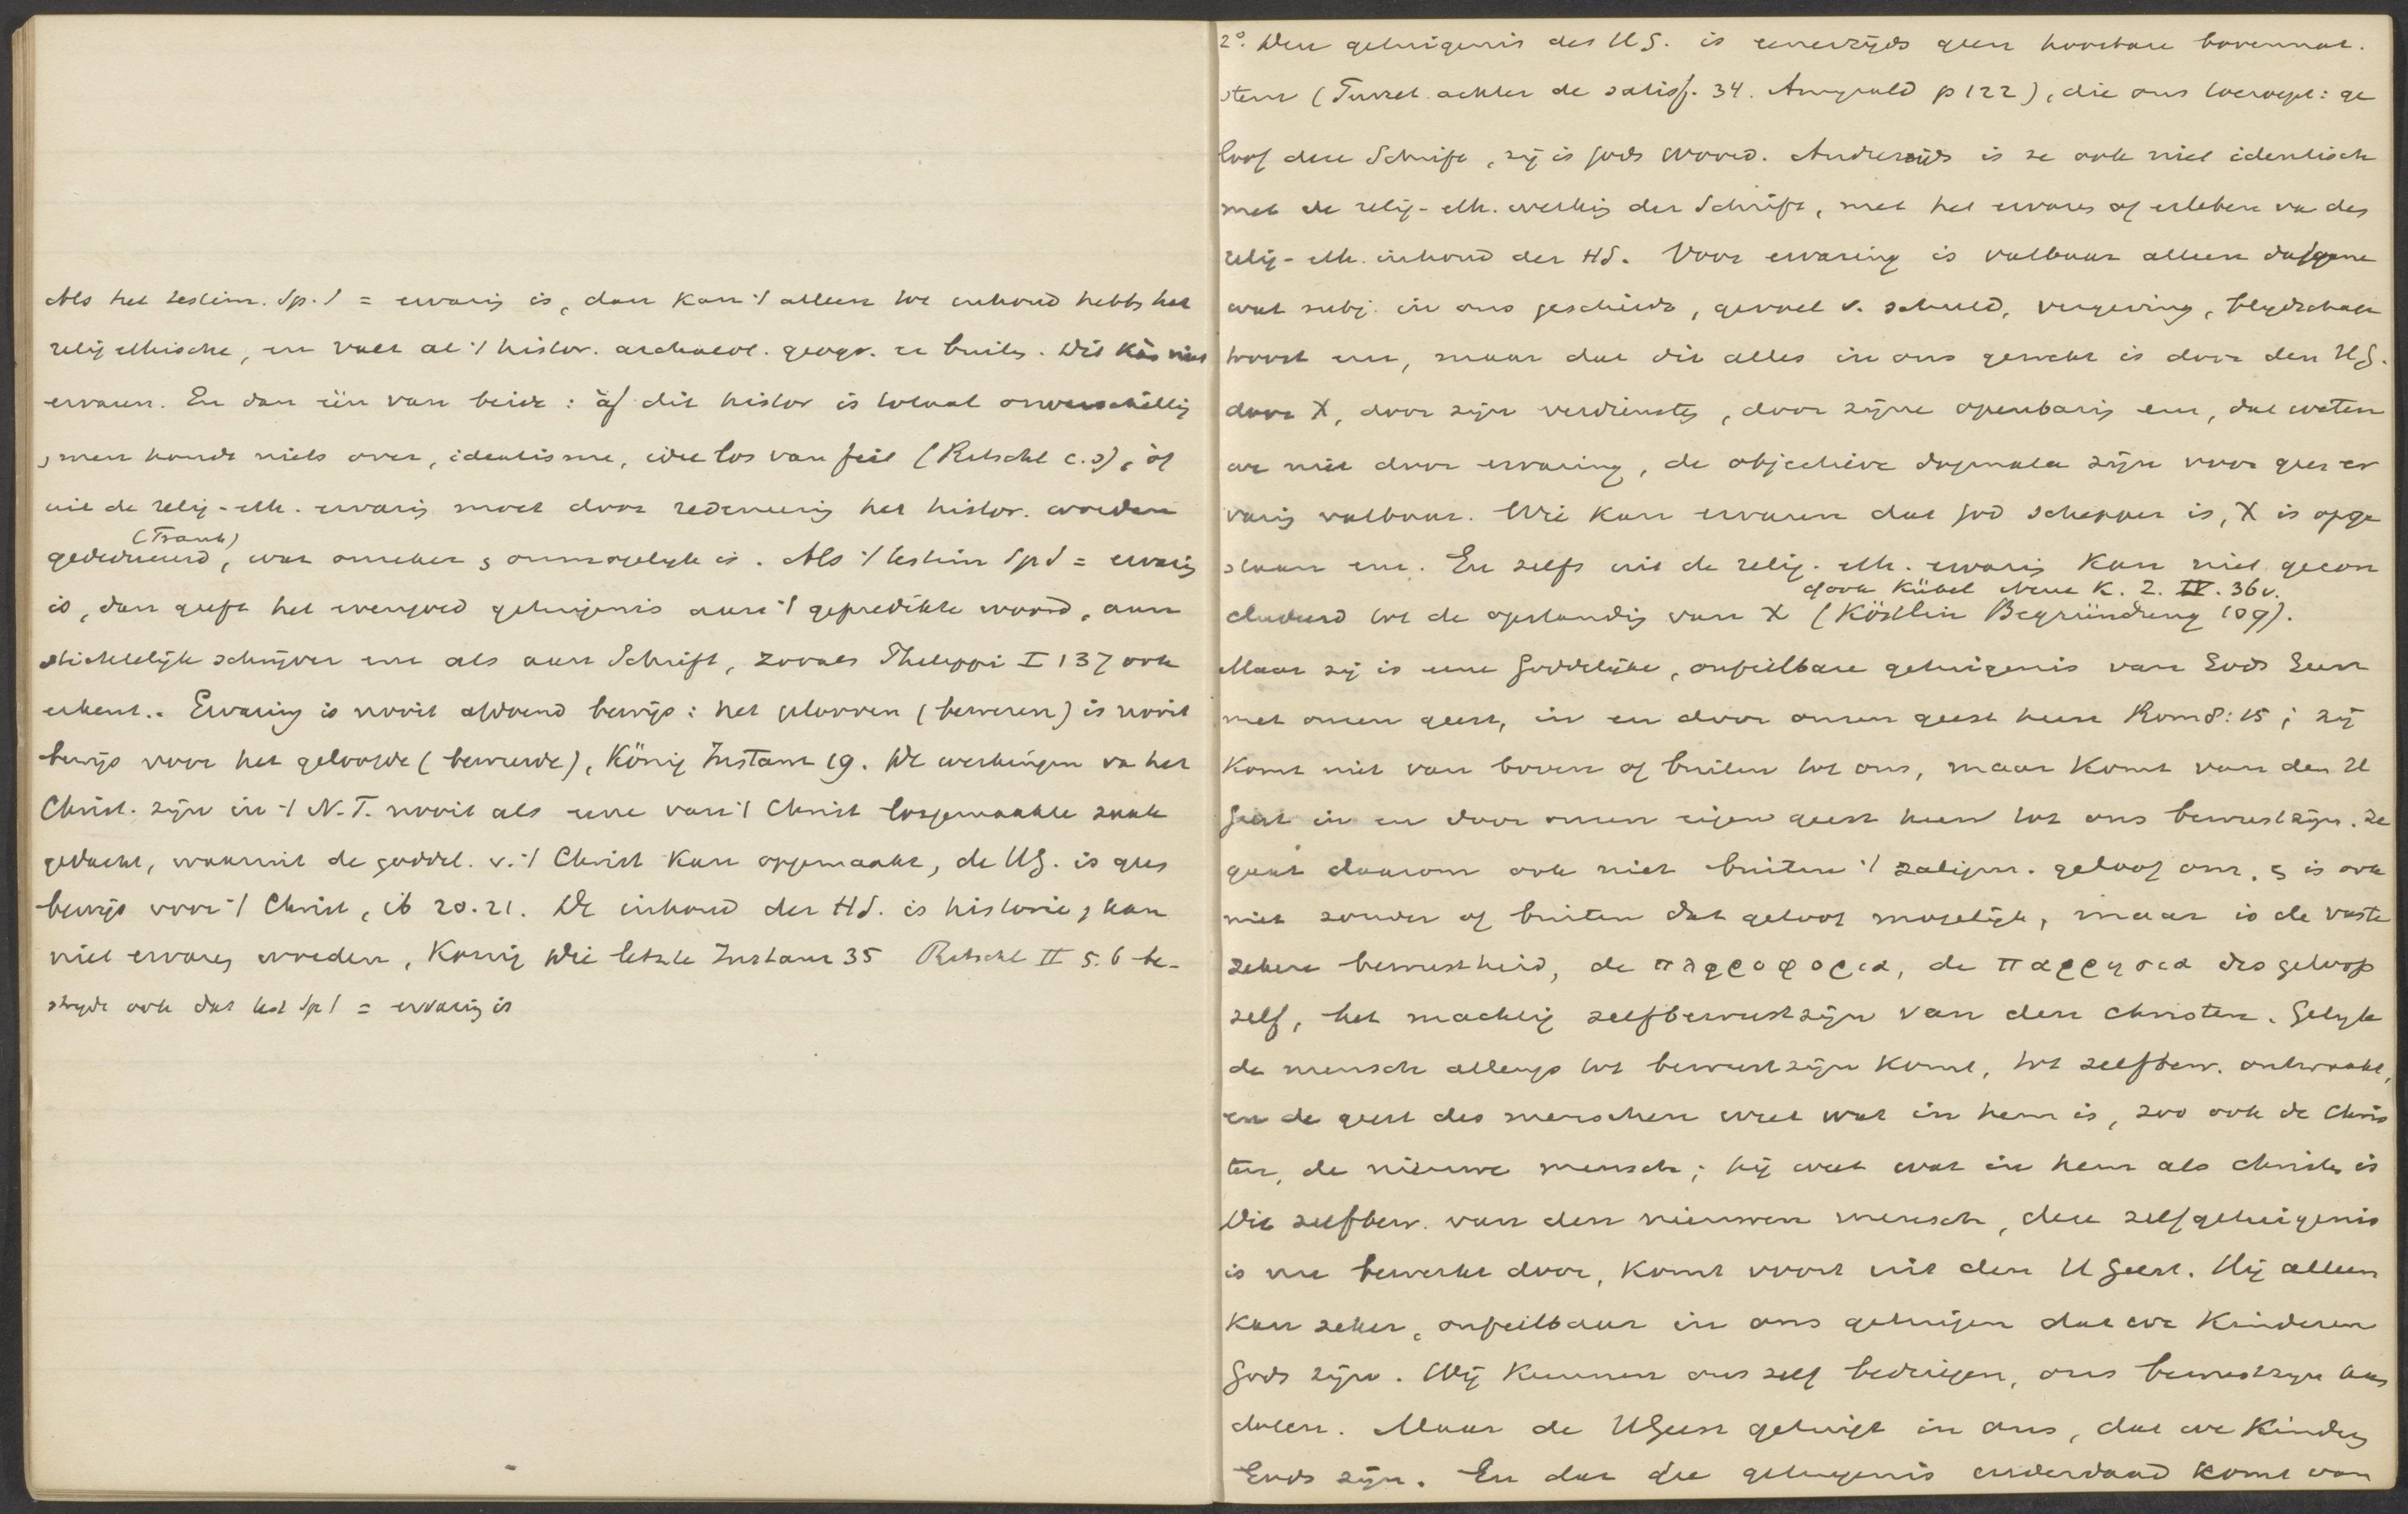 Als het testim. Sp. S = ervarig is, dan kan 't alleen tot inhoud hebbn het
relig ethische, en valt al 't histor. archaeol. geogr. er buiten. Dit kàn niet
ervaren. En dan één van beide: òf dit histor is totaal onverschillig
, men houdt niets over, idealisme, idee los van feit (Ritschl c.s), òf
uit de relig-eth. ervarig moet door redeneerig het histor. worden
(Frank)
gededuceerd, wat onzeker en onmogelijk is. Als 't testim Sp S = ervarig
is, dan geeft het evengoed getuigenis aan 't gepredikte woord, aan
stichtelijk schrijver enz als aan Schrift, zooals Philippi I 137 ook
erkent. Ervaring is nooit afdoend bewijs: het gelooven (beweren) is nooit
bewijs voor het geloofde (beweerde), König Instanz 19. De werkingen va het
Christ. zijn in 't N.T. nooit als eene van 't Christ losgemaakte zaak
gedacht, waaruit de goddel. v. 't Christ kan opgemaakt, de HG. is geen
bewijs voor 't Christ, ib 20.21. De inhoud der HS. is historie, kan
niet ervaren worden, König Die letzte Instanz 35 Ritschl II 5.6 be-
strijdt ook dat test Sp S = ervarig is
2°. Den getuigenis des HG. is eenerzijds geen hoorbare bovennat.
stem (Turret. achter de satisf. 34. Amyrald p 122), die ons toeroept: ge
loof deze Schrift, zij is Gods woord. Anderzijds is ze ook niet identisch
met de relig-eth. werkig der Schrift, met het ervaren of erleben va den
relig-eth. inhoud der HS. Voor ervaring is vatbaar alleen datgene
wat subj. in ons geschiedt, gevoel v. schuld, vergeving, blijdschap
troost enz, maar dat dit alles in ons gewerkt is door den HG.
door X, door zijn verdiensten, door zijne openbarig enz, dat weten
we niet door ervaring, de objectieve dogmata zijn voor geen er
varig vatbaar. Wie kan ervaren dat God schepper is, X is opge
staan enz. En zelfs uit de relig.-eth. ervarig kan niet gecon
cf ook Kübel Neue K. Z. IV. 36v.
cludeerd tot de opstandig van X (Köstlin Begründung 109).
Maar zij is eene Goddelijke, onfeilbare getuigenis van Gods Geest
met onzen geest, in en door onzen geest heen Rom 8:15; zij
komt niet van boven of buiten tot ons, maar komt van den H
Geest in en door onzen eigen geest heen tot ons bewustzijn. Ze
gaat daarom ook niet buiten 't zaligm. geloof om, en is ook
niet zonder of buiten dat geloof mogelijk, maar is de vaste
zekere bewustheid, de πληροφορια, de παρρησια des geloofs
zelf, het machtig zelfbewustzijn van den christen. Gelijk
de mensch allengs tot bewustzijn komt, tot zelfbew. ontwaakt,
en de geest des menschen weet wat in hem is, zoo ook de Chris
ten, de nieuwe mensch; hij weet wat in hem als christen is
Dit zelfbew. van den nieuwen mensch, deze zelfgetuigenis
is nu bewerkt door, komt voort uit den H Geest. Hij alleen
kan zeker, onfeilbaar in ons getuigen dat we kinderen
Gods zijn. Wij kunnen ons zelf bedriegen, ons bewustzijn kan
dolen. Maar de HGeest getuigt in ons, dat we kinderen
Gods zijn. En dat die getuigenis inderdaad komt van